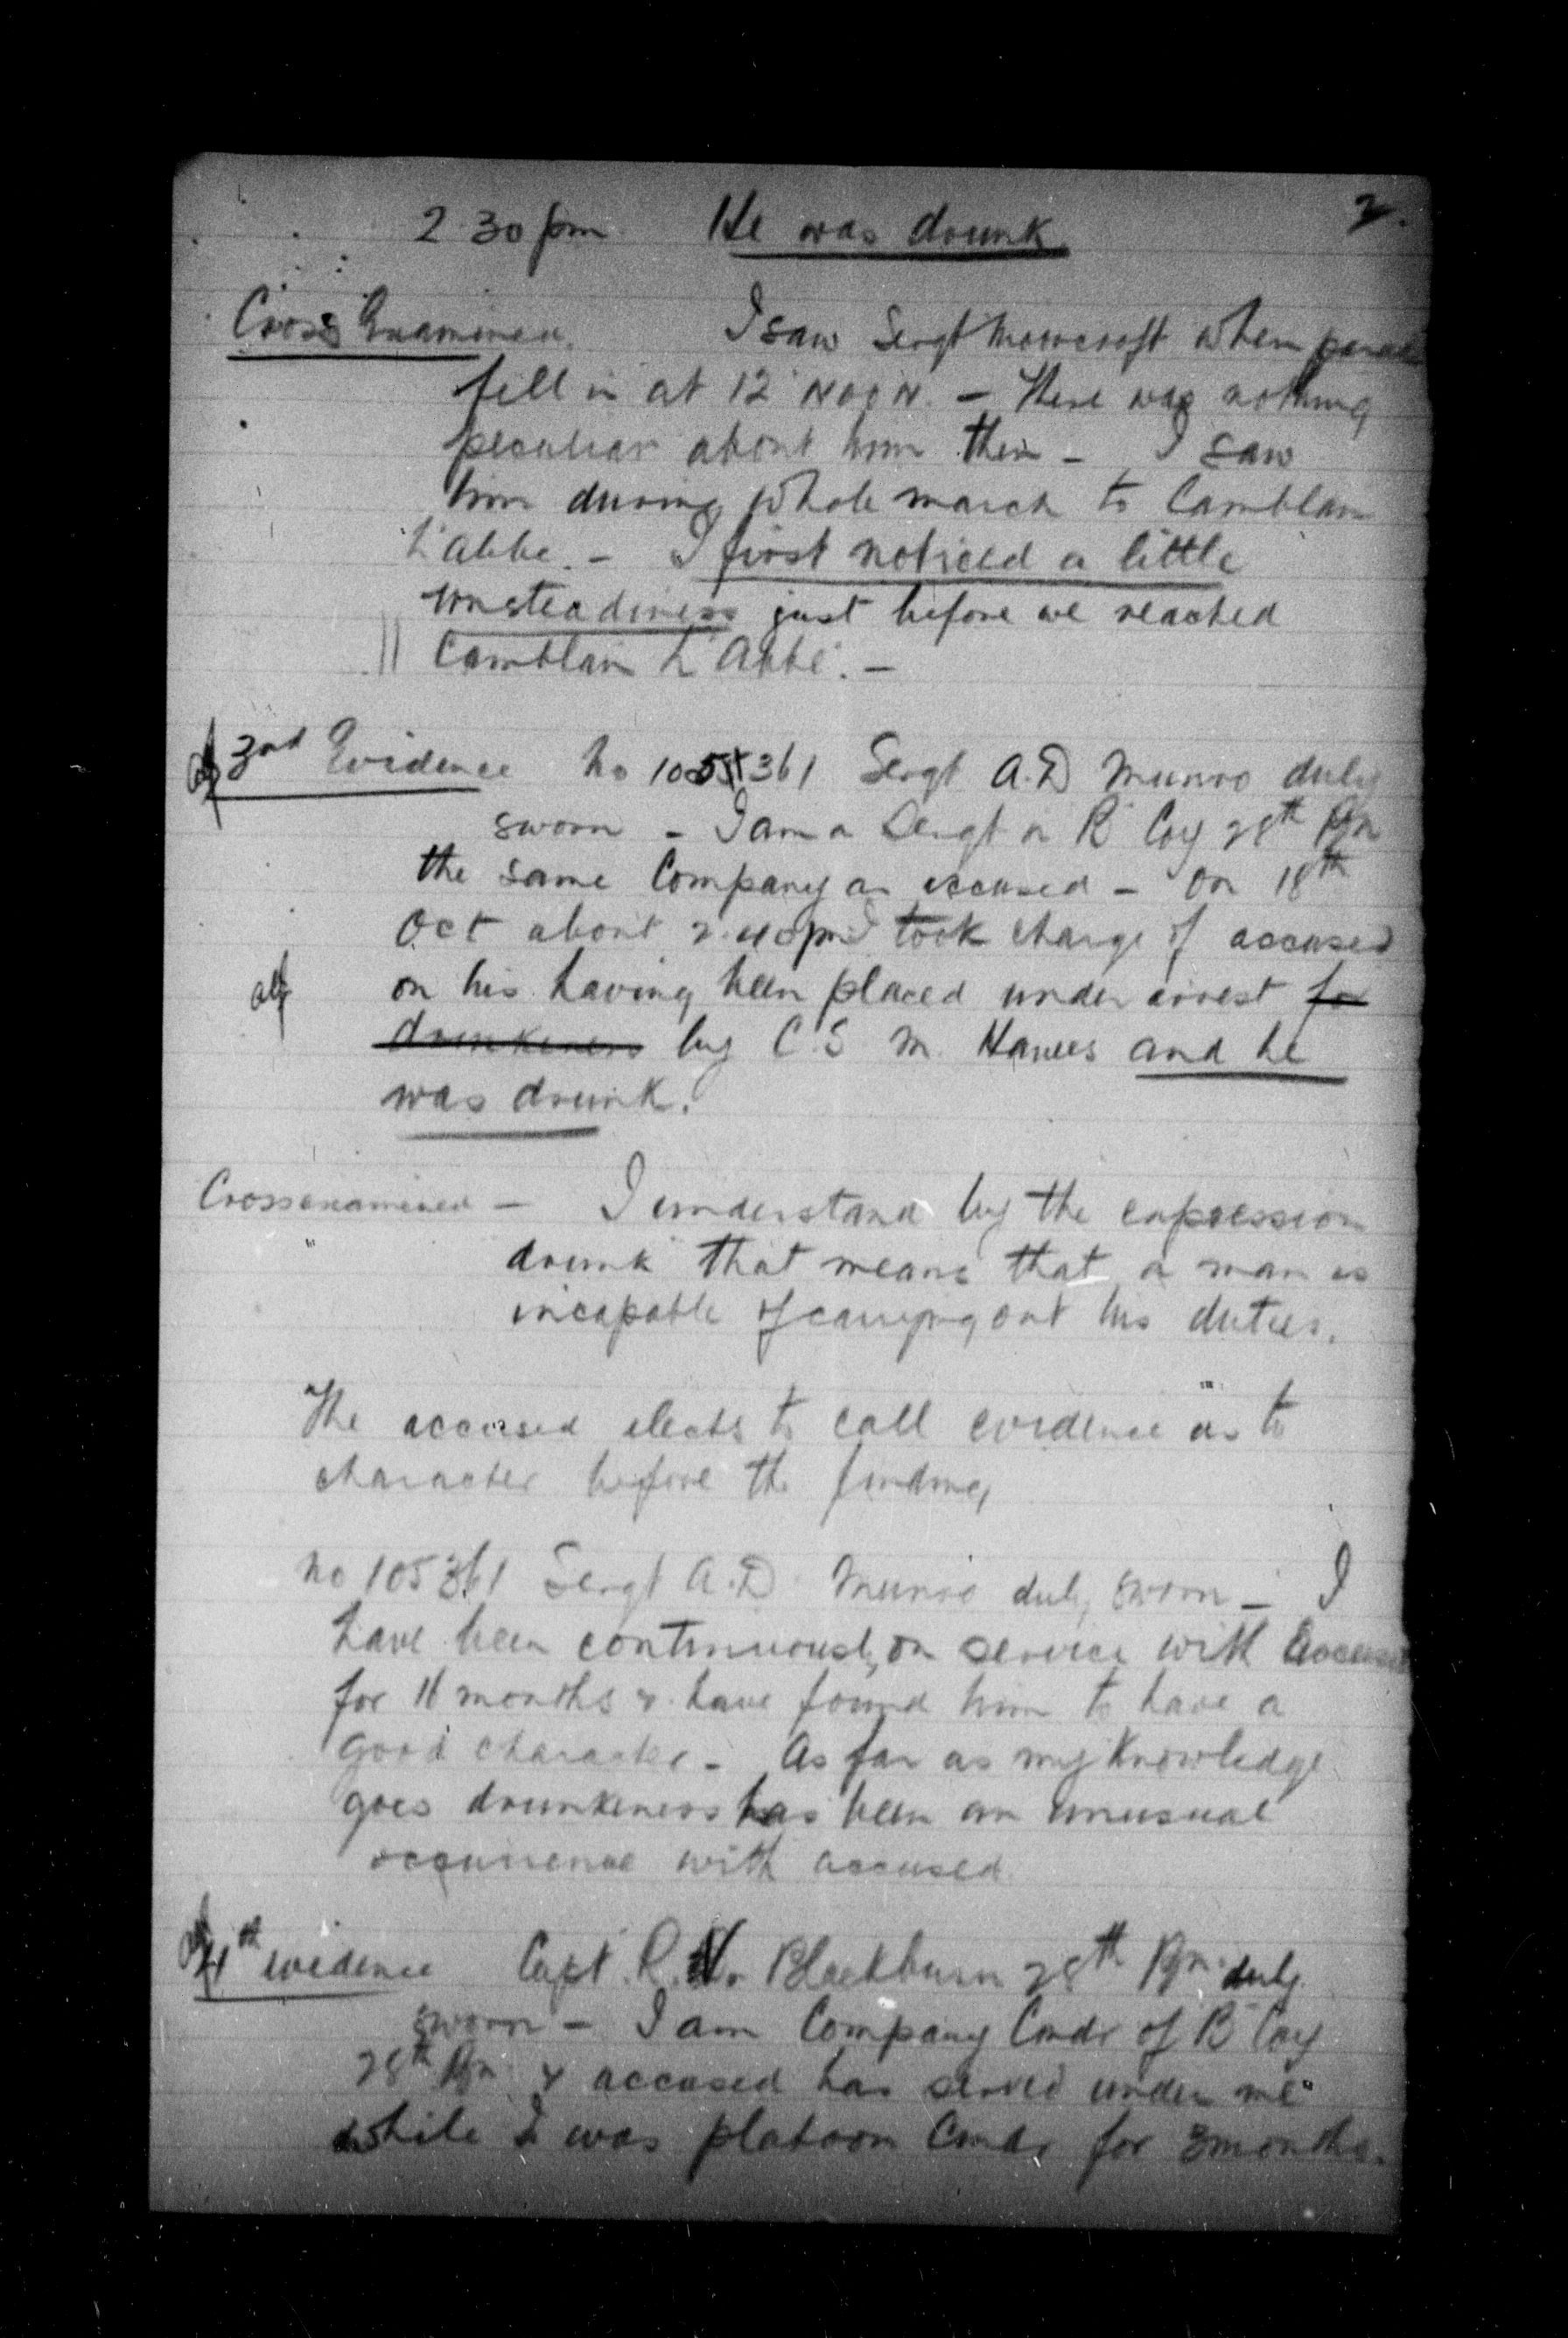 2.
2.30 pm He was drunk
Cross Examined. I saw Sergt Mowcroft when parade
fell in at 12 NOON. – There was nothing
peculiar about him then – I saw
him during whole march to Camblain
L'Abbe. – I first noticed a little
unsteadiness just before we reached
Camblain L'Abbé. –
3rd Evidence No 105361 Sergt A.D Munro duly
sworn – I am a Sergt in B Coy 28th Bn
the same Company as accused – On 18th
Oct about 2.40pm I took charge of accused
on his having been placed under arrest for
drunkeness by C.S.M. Hawes and he
was drunk.
Cross examined – I understand by the expression
drunk that means that a man is
incapable of carrying out his duties.
The accused elects to call evidence as to
character before the finding
No 105361 Sergt A.D Munro duly sworn – I
have been continuously on service with accused
for 11 months & have found him to have a
good character – As far as my knowledge
goes drunkeness has been an unusual
occurrence with accused.
4th evidence Capt. R. Blackburn 28th Bn. duly
sworn – I am Company Comdr of B Coy
28th Bn. & accused has served under me
while I was platoon Comdr for 3 months.